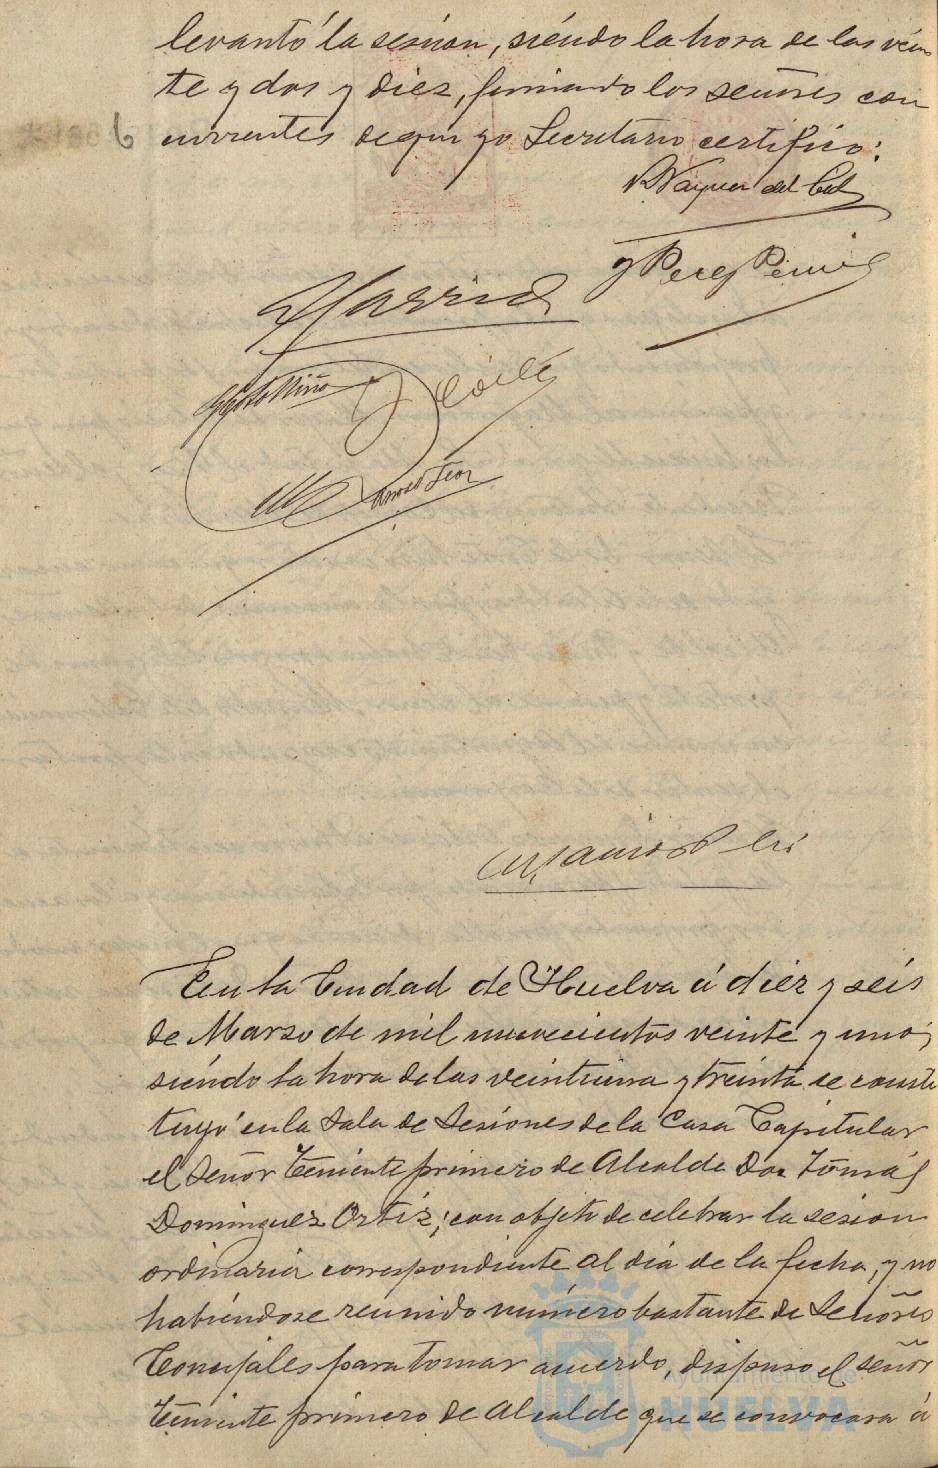 levantó la sesión, siendo la hora de las vein
te y dos y diez, firmando los señores con
currentes de que yo Secretario certifico:
Vazquez
y Perez
Garrido
En la Ciudad de Huelva á diez y seis
de Marzo de mil novecientos veinte y uno,
siendo la hora de las veintiuna y treinta se consti
tuyó en la Sala de Sesiones de la Casa Capitular
el Señor Teniente primero de Alcalde Don Tomás
Dominguez Ortiz, con objeto de celebrar la sesion
ordinaria correspondiente al dia de la fecha, y no
habiendose reunido número bastante de Señores
Concejales para tomar acuerdo, dispuso el señor
Teniente primero de Alcalde que se convocara á
Ayuntamiento de
HUELVA